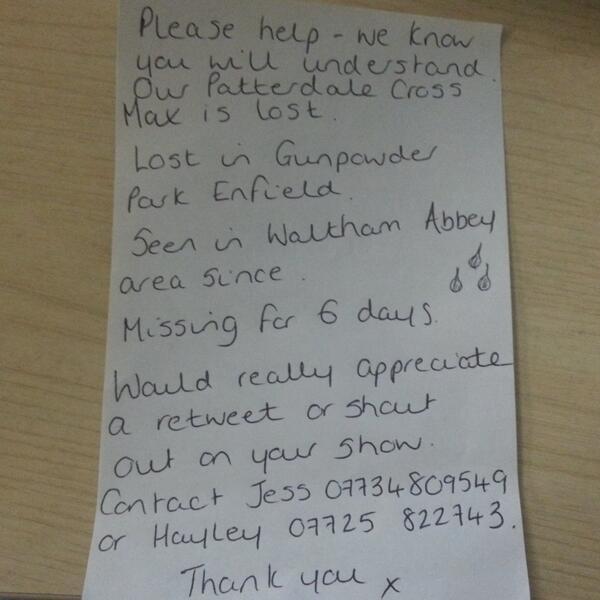 Please help - we know
you will understand.
Our Patterdale Cross
Max is lost.
Lost in Gunpowder
Park Enfield.
Seen in Waltham Abbey
area since.
Missing for 6 days.
Would really appreciate
a retweet or shout
out on your show.
Contact Jess 07734809549
or Hayley 07725 822743.
Thank you x